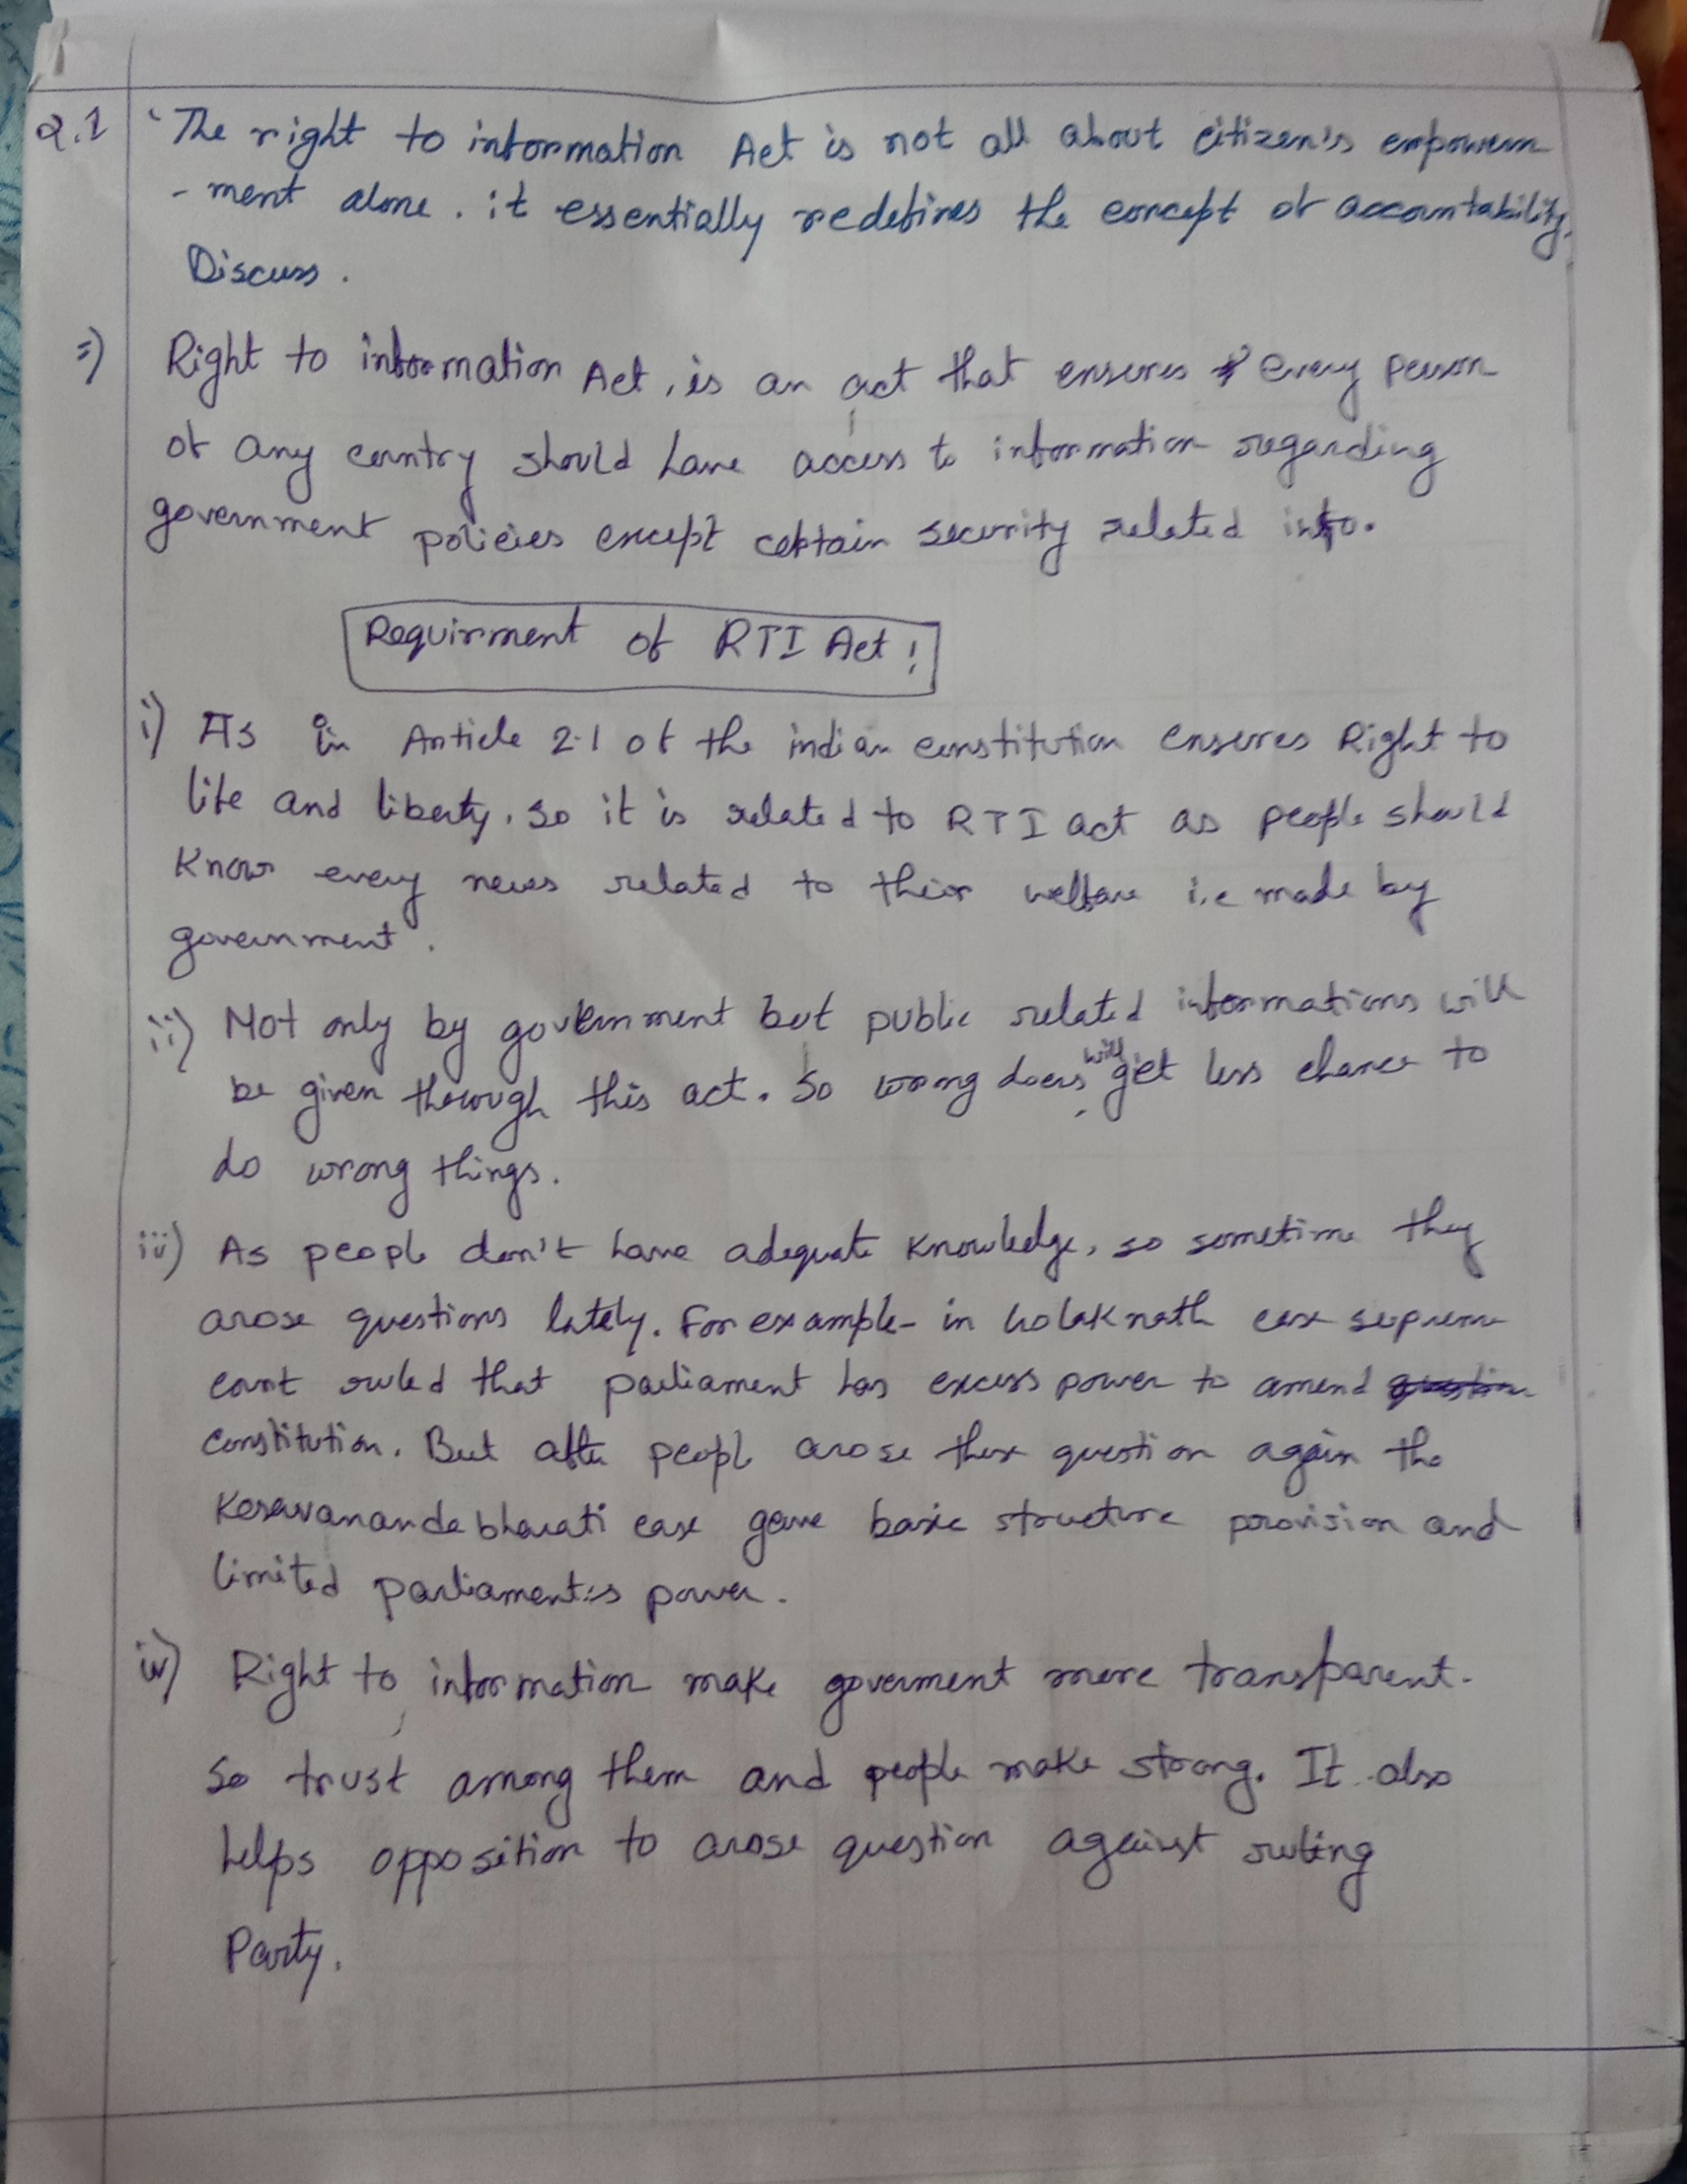 Q.1 'The right to information Act is not all about citizen's empowerm
- ment alone. it essentially redefines the concept of accountability.
Discuss.
=) Right to information Act, is an act that ensures every person
of any country should have access to information regarding
government policies except certain security related info.
Requirment of RTI Act!
i) As in Article 21 of the indian constitution ensures Right to
life and liberty. So it is related to RTI act as people should
know every news related to their welfare i.e made by
government.
ii) Not only by government but public related informations will
be given through this act. So wrong doers will get less chance to
do wrong things.
iii) As people don't have adequate knowledge, so sometime they
arose questions lately. For example- in Golaknath case supreme
court ruled that parliament has excess power to amend
constitution. But after people arose question again the
Kesavananda bharati case gave basic structure provision and
limited parliament's power.
iv) Right to information make goverment more transparent.
So trust among them and people make strong. It also
helps opposition to arose question against ruling
Party.